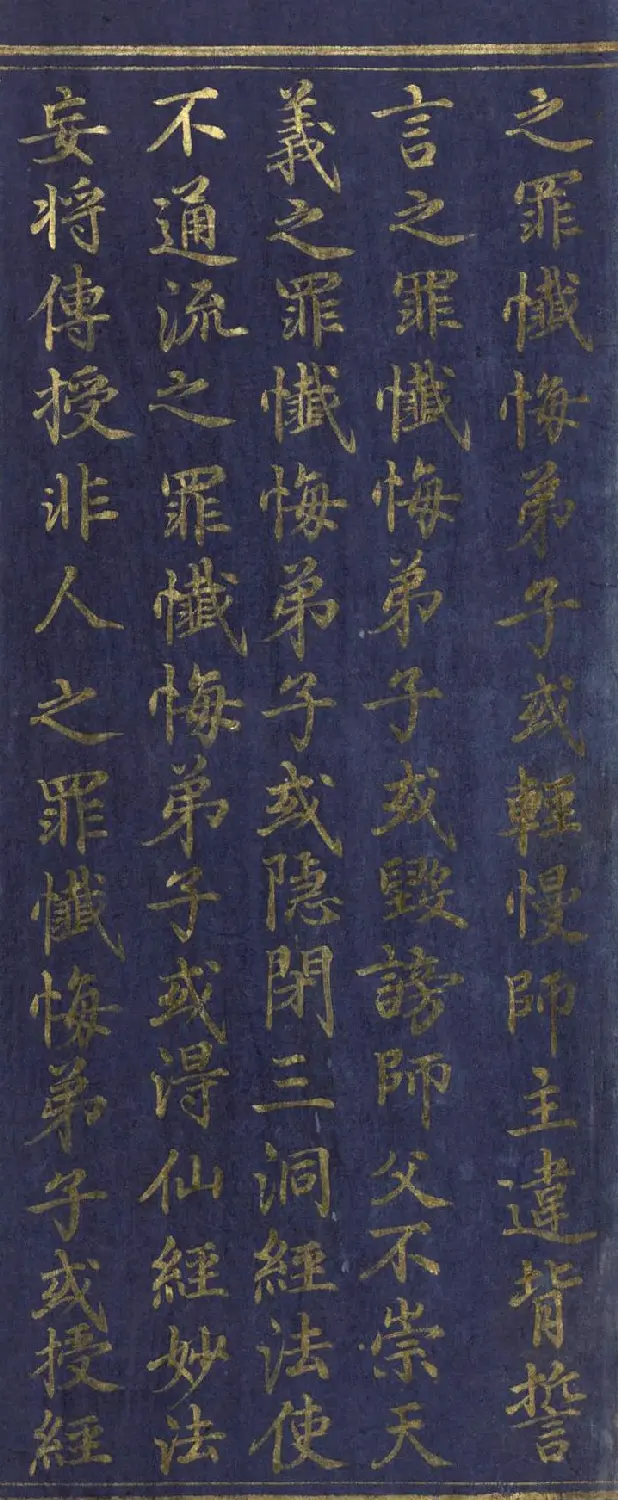 之罪懺悔弟子或輕慢師主違背誓
言之罪懺悔弟子或毀謗師父不崇天
義之罪懺悔弟子或隐閉三洞經法使
不通流之罪懺悔弟子或淂仙經妙法
妄将傳授非人之罪懺悔弟子或授經